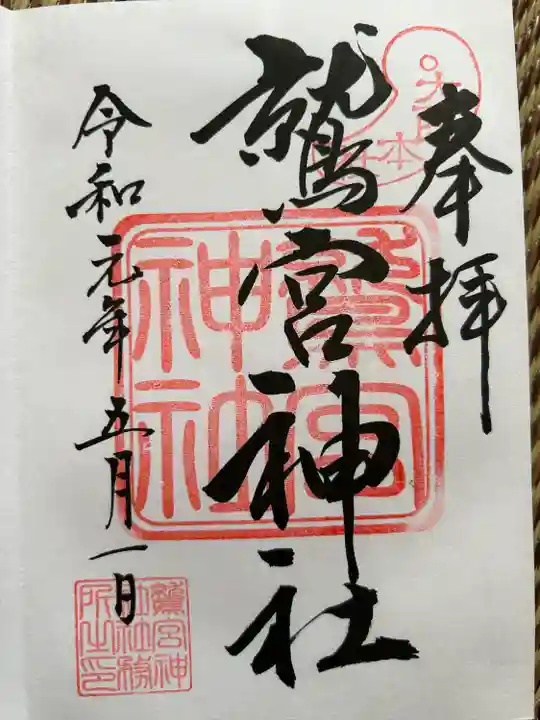 奉拝
鷲宮神社
令和元年五月一日
鷲宮
神社
鷲宮神
社社務
所之印